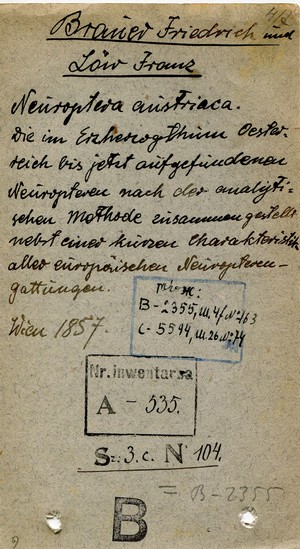 Brauer Friedrich und
Löw Franz
Neuroptera austriaca.
Die im Erzherzogthum Oester-
reich bis jetzt aufgefundenen
Neuropteren nach der analyti-
schen Methode zusammengestellt
nebst einer kurzen Charakteristik
aller europäischen Neuropteren-
gattungen.
Wien 1857.
B-2355, III.4f/№163
C-5594, III.26№74
Nr. inwentarza
A - 535.
Sz. 3. c. N 104.
= B-2355
B